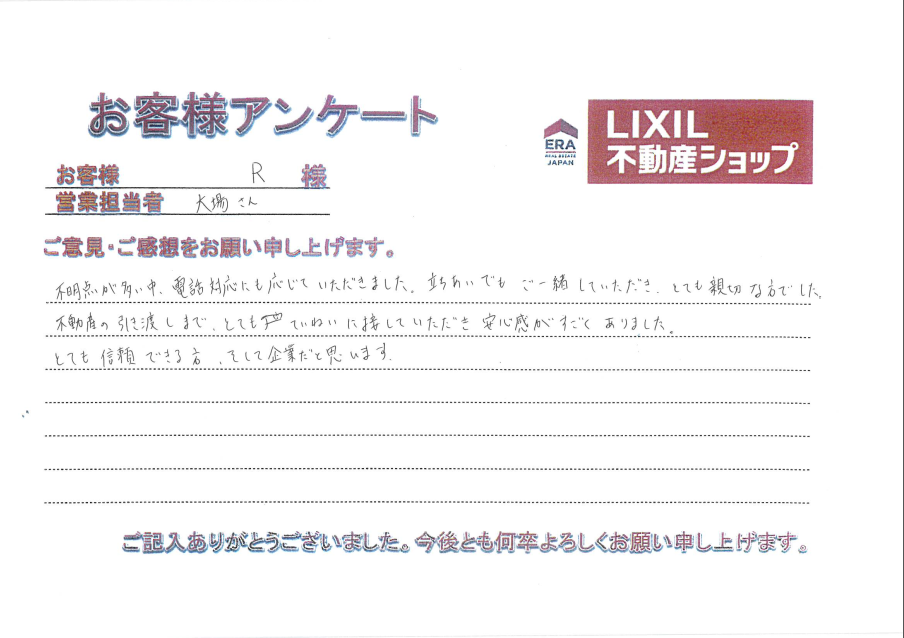 お客様アンケート
ERA
REAL ESTATE
JAPAN
LIXIL
不動産ショップ
お客様 R 様
営業担当者 大場さん
ご意見・ご感想をお願い申し上げます。
不明点が多い中、電話対応にも応じていただきました。立ちあいでもご一緒していただき、とても親切な方でした。
不動産の引き渡しまで、とてもていねいに接していただき安心感がすごくありました。
とても信頼できる方、そして企業だと思います。
ご記入ありがとうございました。今後とも何卒よろしくお願い申し上げます。